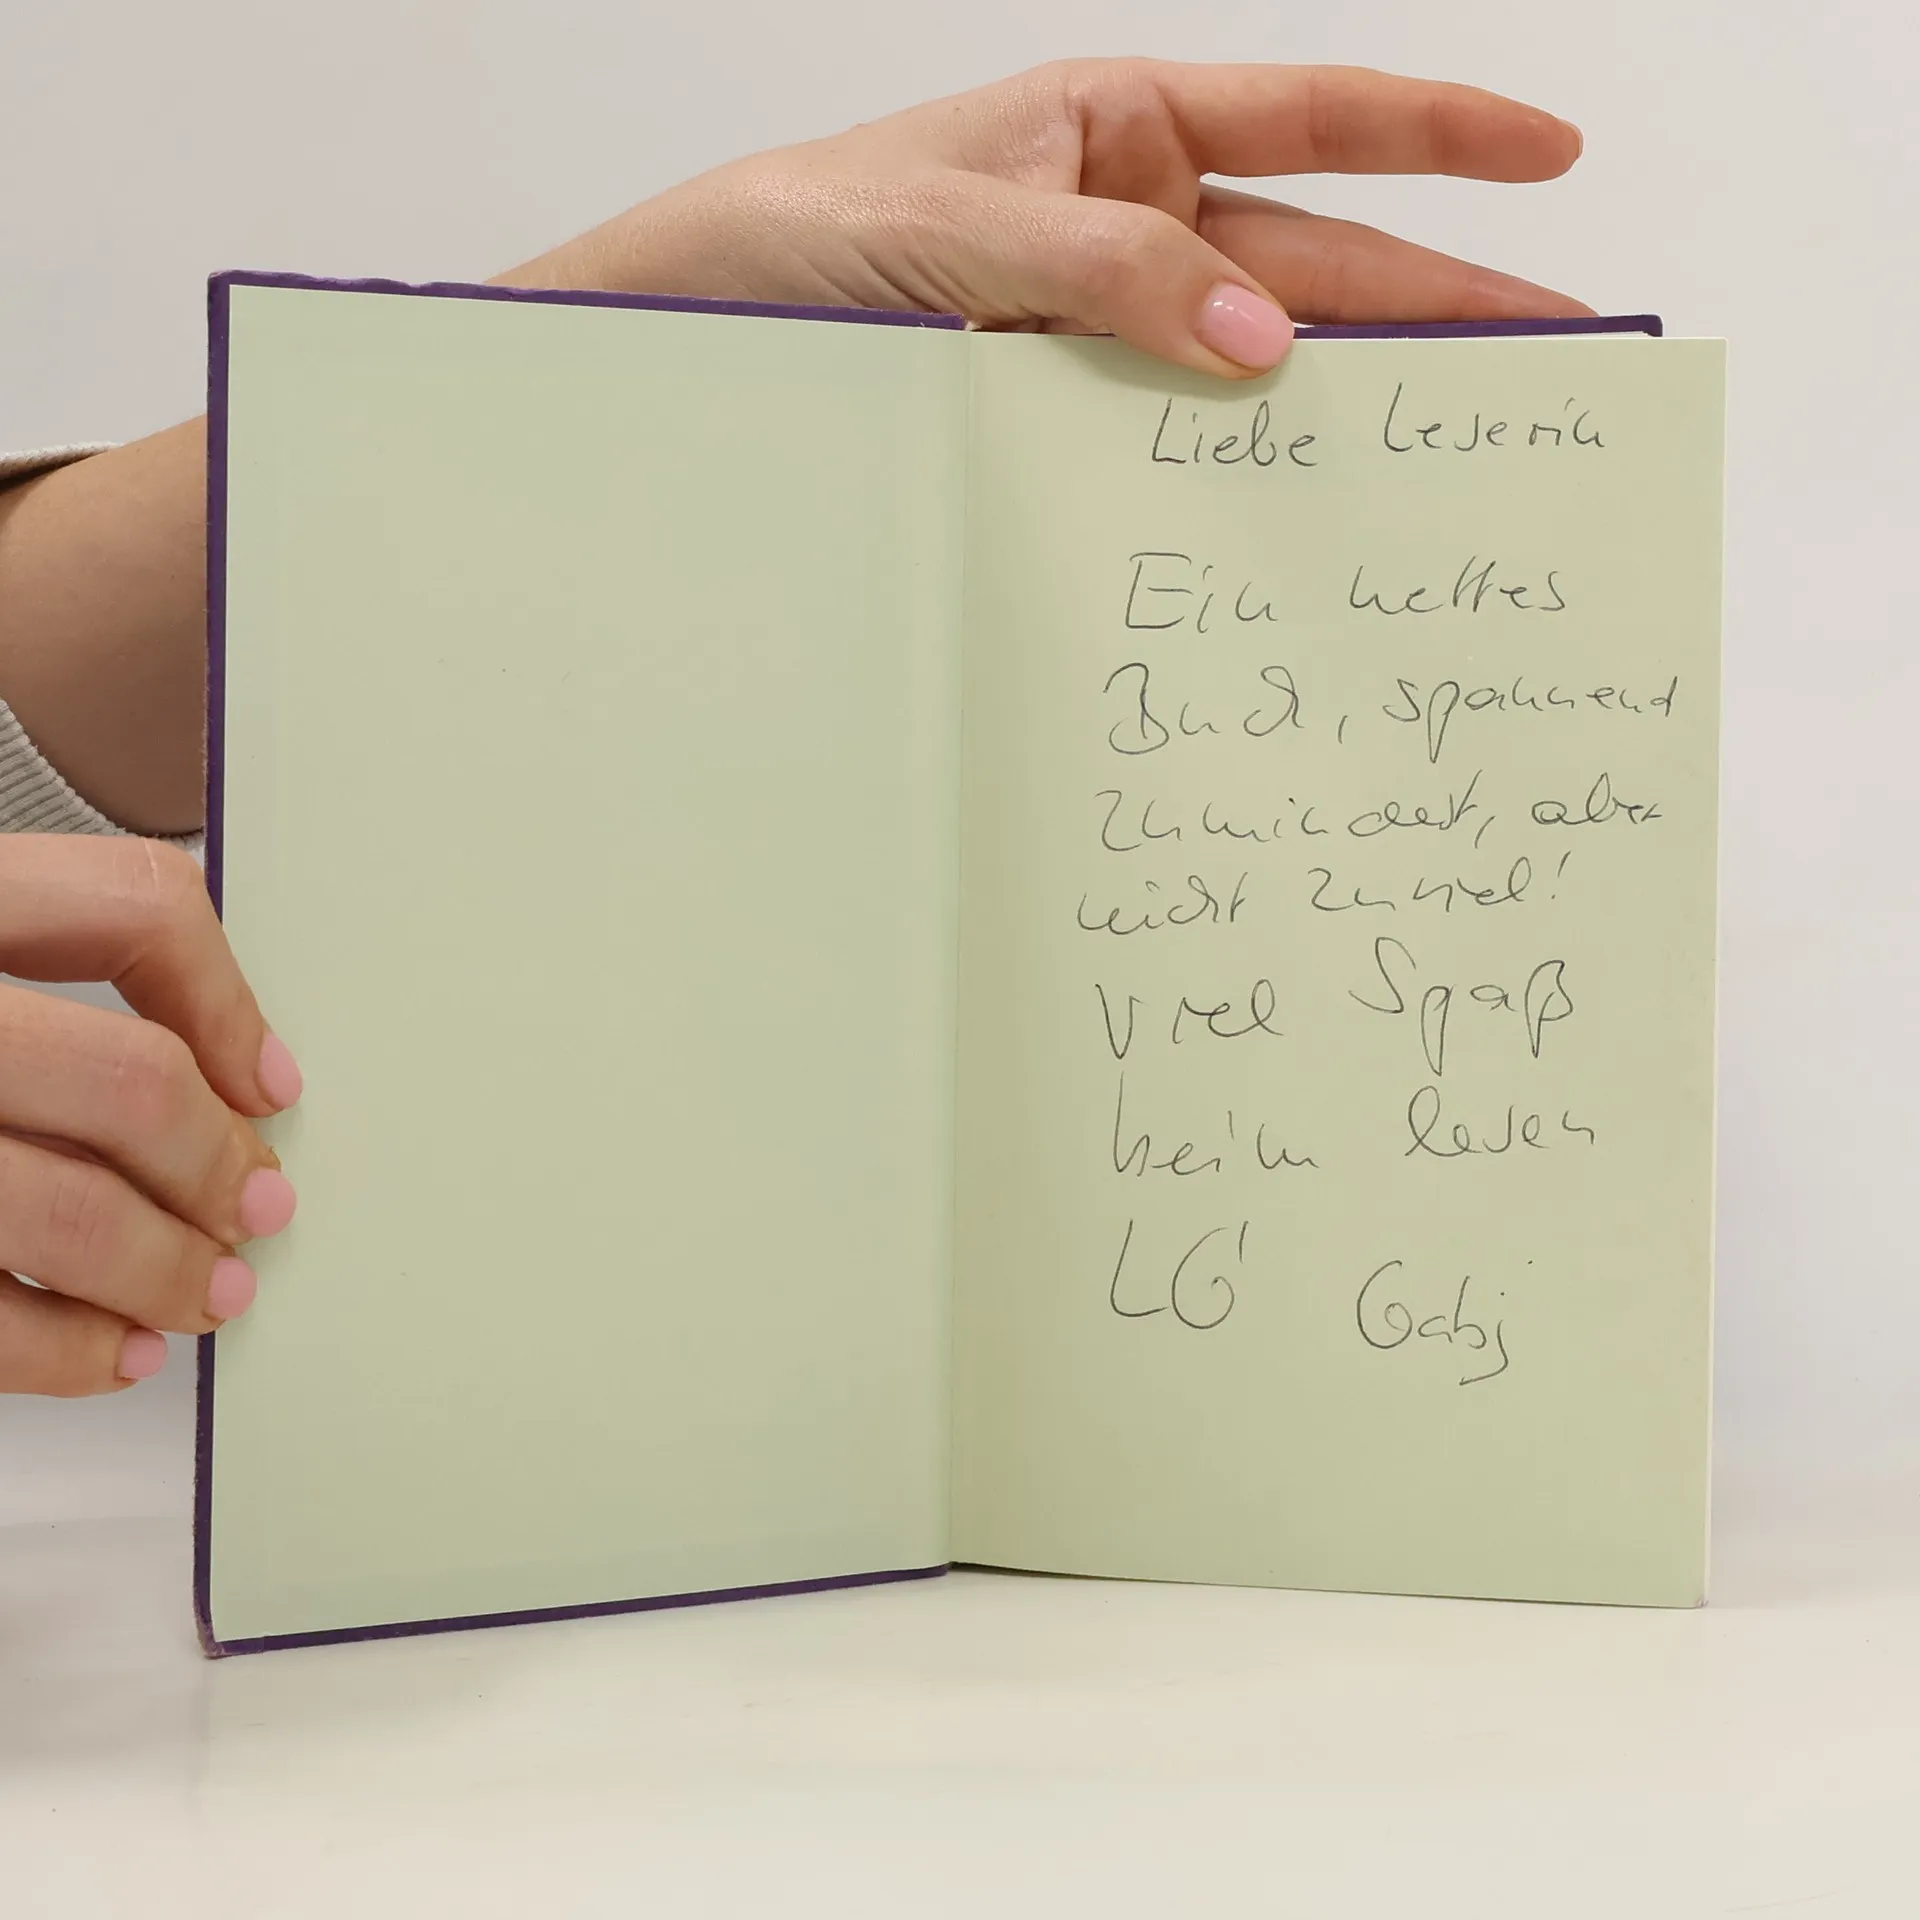 Liebe Leserin
Ein nettes
Buch, spannend
zumindest, aber
nicht zuviel!
Viel Spaß
beim lesen
LG Gabj